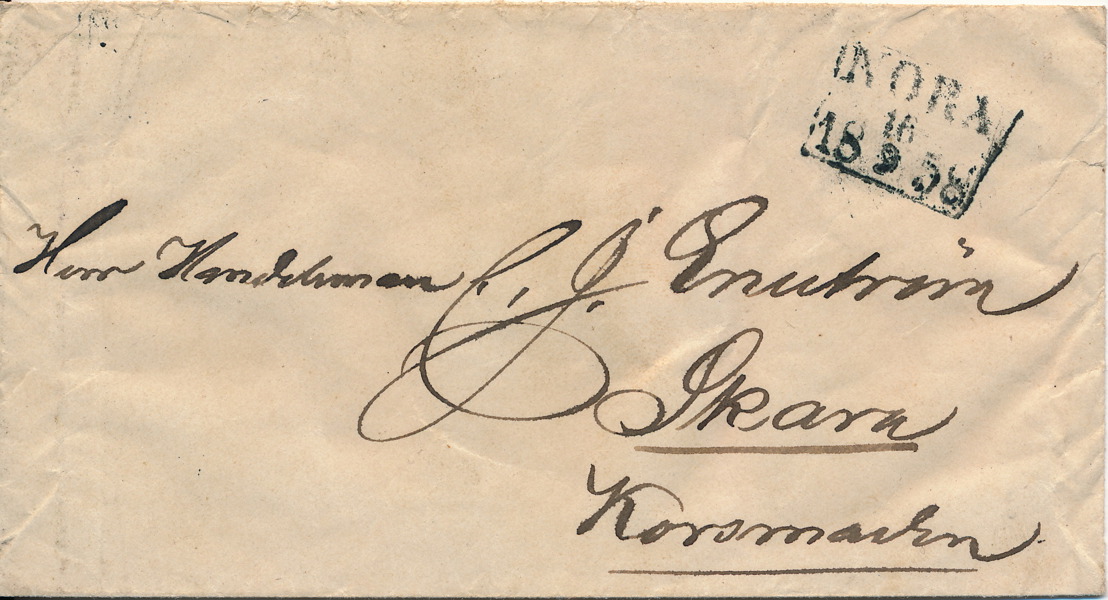 NORA
16
18 9 58
Herr Handelsman C. J. Enström
Skara
Korsmachen